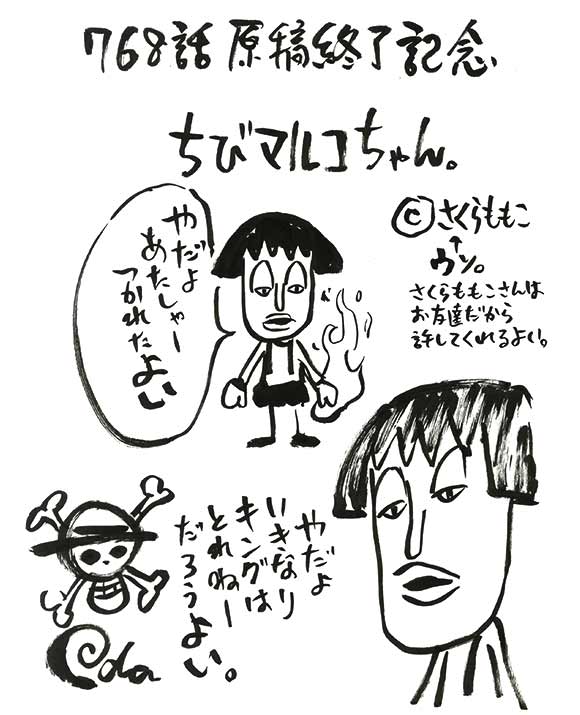 768話 原稿終了記念
ちびマルコちゃん。
やだよ
あたしゃー
つかれたよい
©さくらももこ
↑
ウソ。
さくらももこさんは
お友達だから
許してくれるよい。
やだよ
いきなり
キングは
とれねー
だろうよい。
Oda